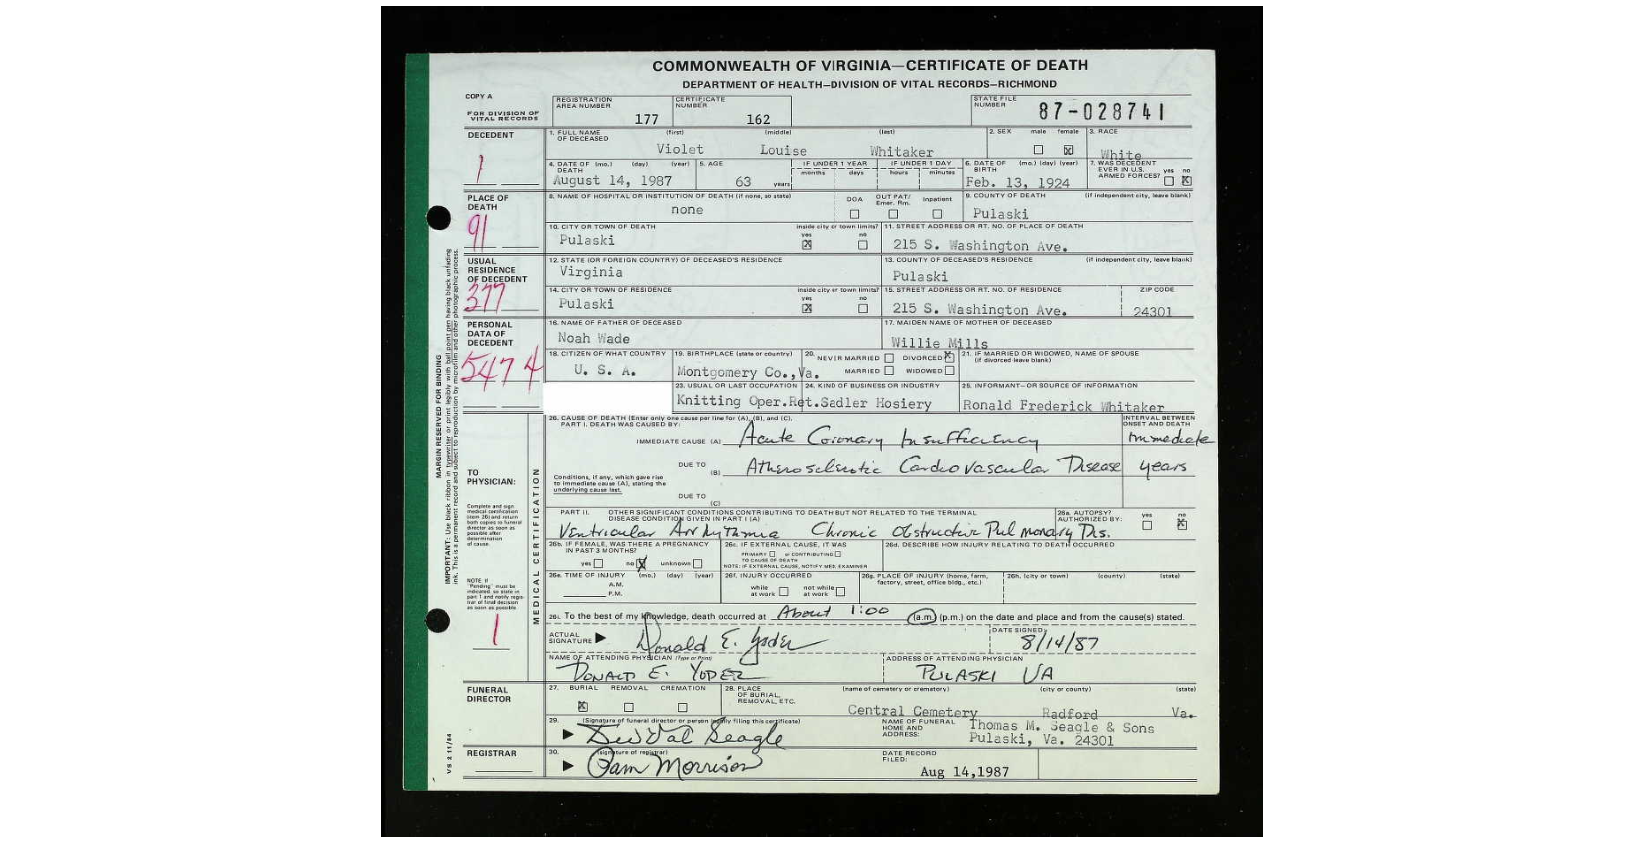 COMMONWEALTH OF VIRGINIA—CERTIFICATE OF DEATH
DEPARTMENT OF HEALTH—DIVISION OF VITAL RECORDS—RICHMOND
COPY A
FOR DIVISION OF VITAL RECORDS
REGISTRATION AREA NUMBER 177
CERTIFICATE NUMBER 162
STATE FILE NUMBER 87-028741
DECEDENT
1
1. FULL NAME OF DECEASED (first) (middle) (last)
Violet Louise Whitaker
2. SEX male female
3. RACE White
4. DATE OF DEATH (mo.) (day) (year) August 14, 1987
5. AGE 63 years
IF UNDER 1 YEAR months days
IF UNDER 1 DAY hours minutes
6. DATE OF BIRTH (mo.) (day) (year) Feb. 13, 1924
7. WAS DECEDENT EVER IN U.S. ARMED FORCES? yes no
PLACE OF DEATH
91
8. NAME OF HOSPITAL OR INSTITUTION OF DEATH (if none, so state) none
DOA OUT PAT/ Emer. Rm. Inpatient
9. COUNTY OF DEATH (if independent city, leave blank) Pulaski
10. CITY OR TOWN OF DEATH Pulaski
inside city or town limits? yes no
11. STREET ADDRESS OR RT. NO. OF PLACE OF DEATH 215 S. Washington Ave.
USUAL RESIDENCE OF DECEDENT
377
12. STATE (OR FOREIGN COUNTRY) OF DECEASED'S RESIDENCE Virginia
13. COUNTY OF DECEASED'S RESIDENCE (if independent city, leave blank) Pulaski
14. CITY OR TOWN OF RESIDENCE Pulaski
inside city or town limits? yes no
15. STREET ADDRESS OR RT. NO. OF RESIDENCE 215 S. Washington Ave.
ZIP CODE 24301
PERSONAL DATA OF DECEDENT
5474
16. NAME OF FATHER OF DECEASED Noah Wade
17. MAIDEN NAME OF MOTHER OF DECEASED Willie Mills
18. CITIZEN OF WHAT COUNTRY U. S. A.
19. BIRTHPLACE (state or country) Montgomery Co.,Va.
20. NEVER MARRIED DIVORCED MARRIED WIDOWED
21. IF MARRIED OR WIDOWED, NAME OF SPOUSE (if divorced leave blank)
23. USUAL OR LAST OCCUPATION Knitting Oper.Ret.
24. KIND OF BUSINESS OR INDUSTRY Sadler Hosiery
25. INFORMANT—OR SOURCE OF INFORMATION Ronald Frederick Whitaker
MARGIN RESERVED FOR BINDING
IMPORTANT: Use black ribbon in typewriter or print legibly with ball point pen having black unfading ink. This is a permanent record and subject to reproduction by microfilm and other photographic process.
TO PHYSICIAN:
Complete and sign medical certification (item 26) and return both copies to funeral director as soon as possible after determination of cause.
NOTE: If "Pending" must be indicated, so state in part 1 and notify registrar of final decision as soon as possible
1
MEDICAL CERTIFICATION
26. CAUSE OF DEATH (Enter only one cause per line for (A), (B), and (C).
PART I. DEATH WAS CAUSED BY:
INTERVAL BETWEEN ONSET AND DEATH
IMMEDIATE CAUSE (A) Acute Coronary Insufficiency Immediate
DUE TO (B) Atherosclerotic Cardiovascular Disease years
Conditions, if any, which gave rise to immediate cause (A), stating the underlying cause last.
DUE TO (C)
PART II. OTHER SIGNIFICANT CONDITIONS CONTRIBUTING TO DEATH BUT NOT RELATED TO THE TERMINAL DISEASE CONDITION GIVEN IN PART I (A)
Ventricular Arrhythmia Chronic Obstructive Pulmonary Dis.
26a. AUTOPSY? AUTHORIZED BY: yes no
26b. IF FEMALE, WAS THERE A PREGNANCY IN PAST 3 MONTHS? yes no unknown
26c. IF EXTERNAL CAUSE, IT WAS PRIMARY or CONTRIBUTING TO CAUSE OF DEATH
NOTE: IF EXTERNAL CAUSE, NOTIFY MED. EXAMINER
26d. DESCRIBE HOW INJURY RELATING TO DEATH OCCURRED
26e. TIME OF INJURY (mo.) (day) (year) A.M. P.M.
26f. INJURY OCCURRED while at work not while at work
26g. PLACE OF INJURY (home, farm, factory, street, office bldg., etc.)
26h. (city or town) (county) (state)
26i. To the best of my knowledge, death occurred at About 1:00 (a.m.) (p.m.) on the date and place and from the cause(s) stated.
ACTUAL SIGNATURE Donald E. Yoder
DATE SIGNED: 8/14/87
NAME OF ATTENDING PHYSICIAN (Type or Print) DONALD E. YODER
ADDRESS OF ATTENDING PHYSICIAN PULASKI VA
FUNERAL DIRECTOR
27. BURIAL REMOVAL CREMATION
28. PLACE OF BURIAL, REMOVAL, ETC. (name of cemetery or crematory) (city or county) (state)
Central Cemetery Radford Va.
29. (Signature of funeral director or person legally filing this certificate)
Seagle
NAME OF FUNERAL HOME AND ADDRESS: Thomas M. Seagle & Sons
Pulaski, Va. 24301
REGISTRAR
30. (signature of registrar) Pam Morrison
DATE RECORD FILED: Aug 14,1987
VS 2 11/84